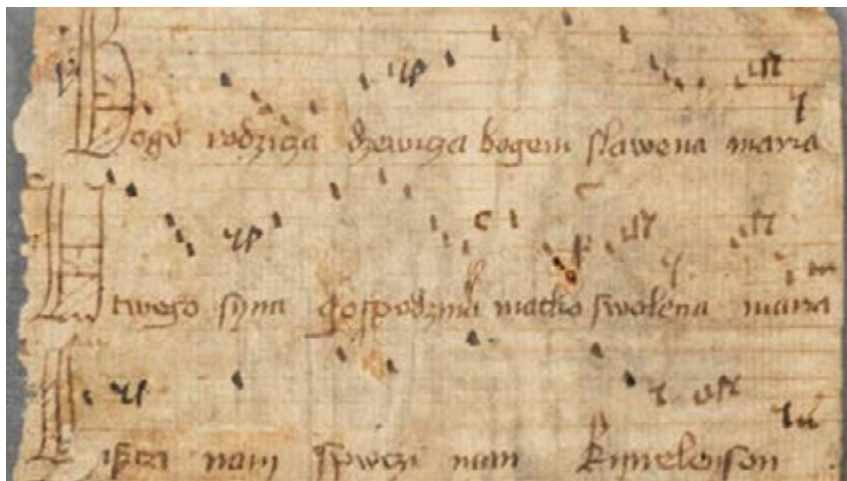 Bogu rodzicza dzewicza bogem slawena maria
U twego syna gospodzina matko swolena maria
nam spwczi nam Kyrieleyson